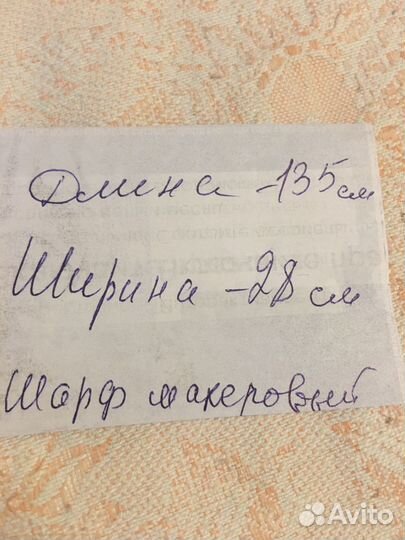 Длина - 135 см
Ширина - 28 см
Шарф махеровый
Avito